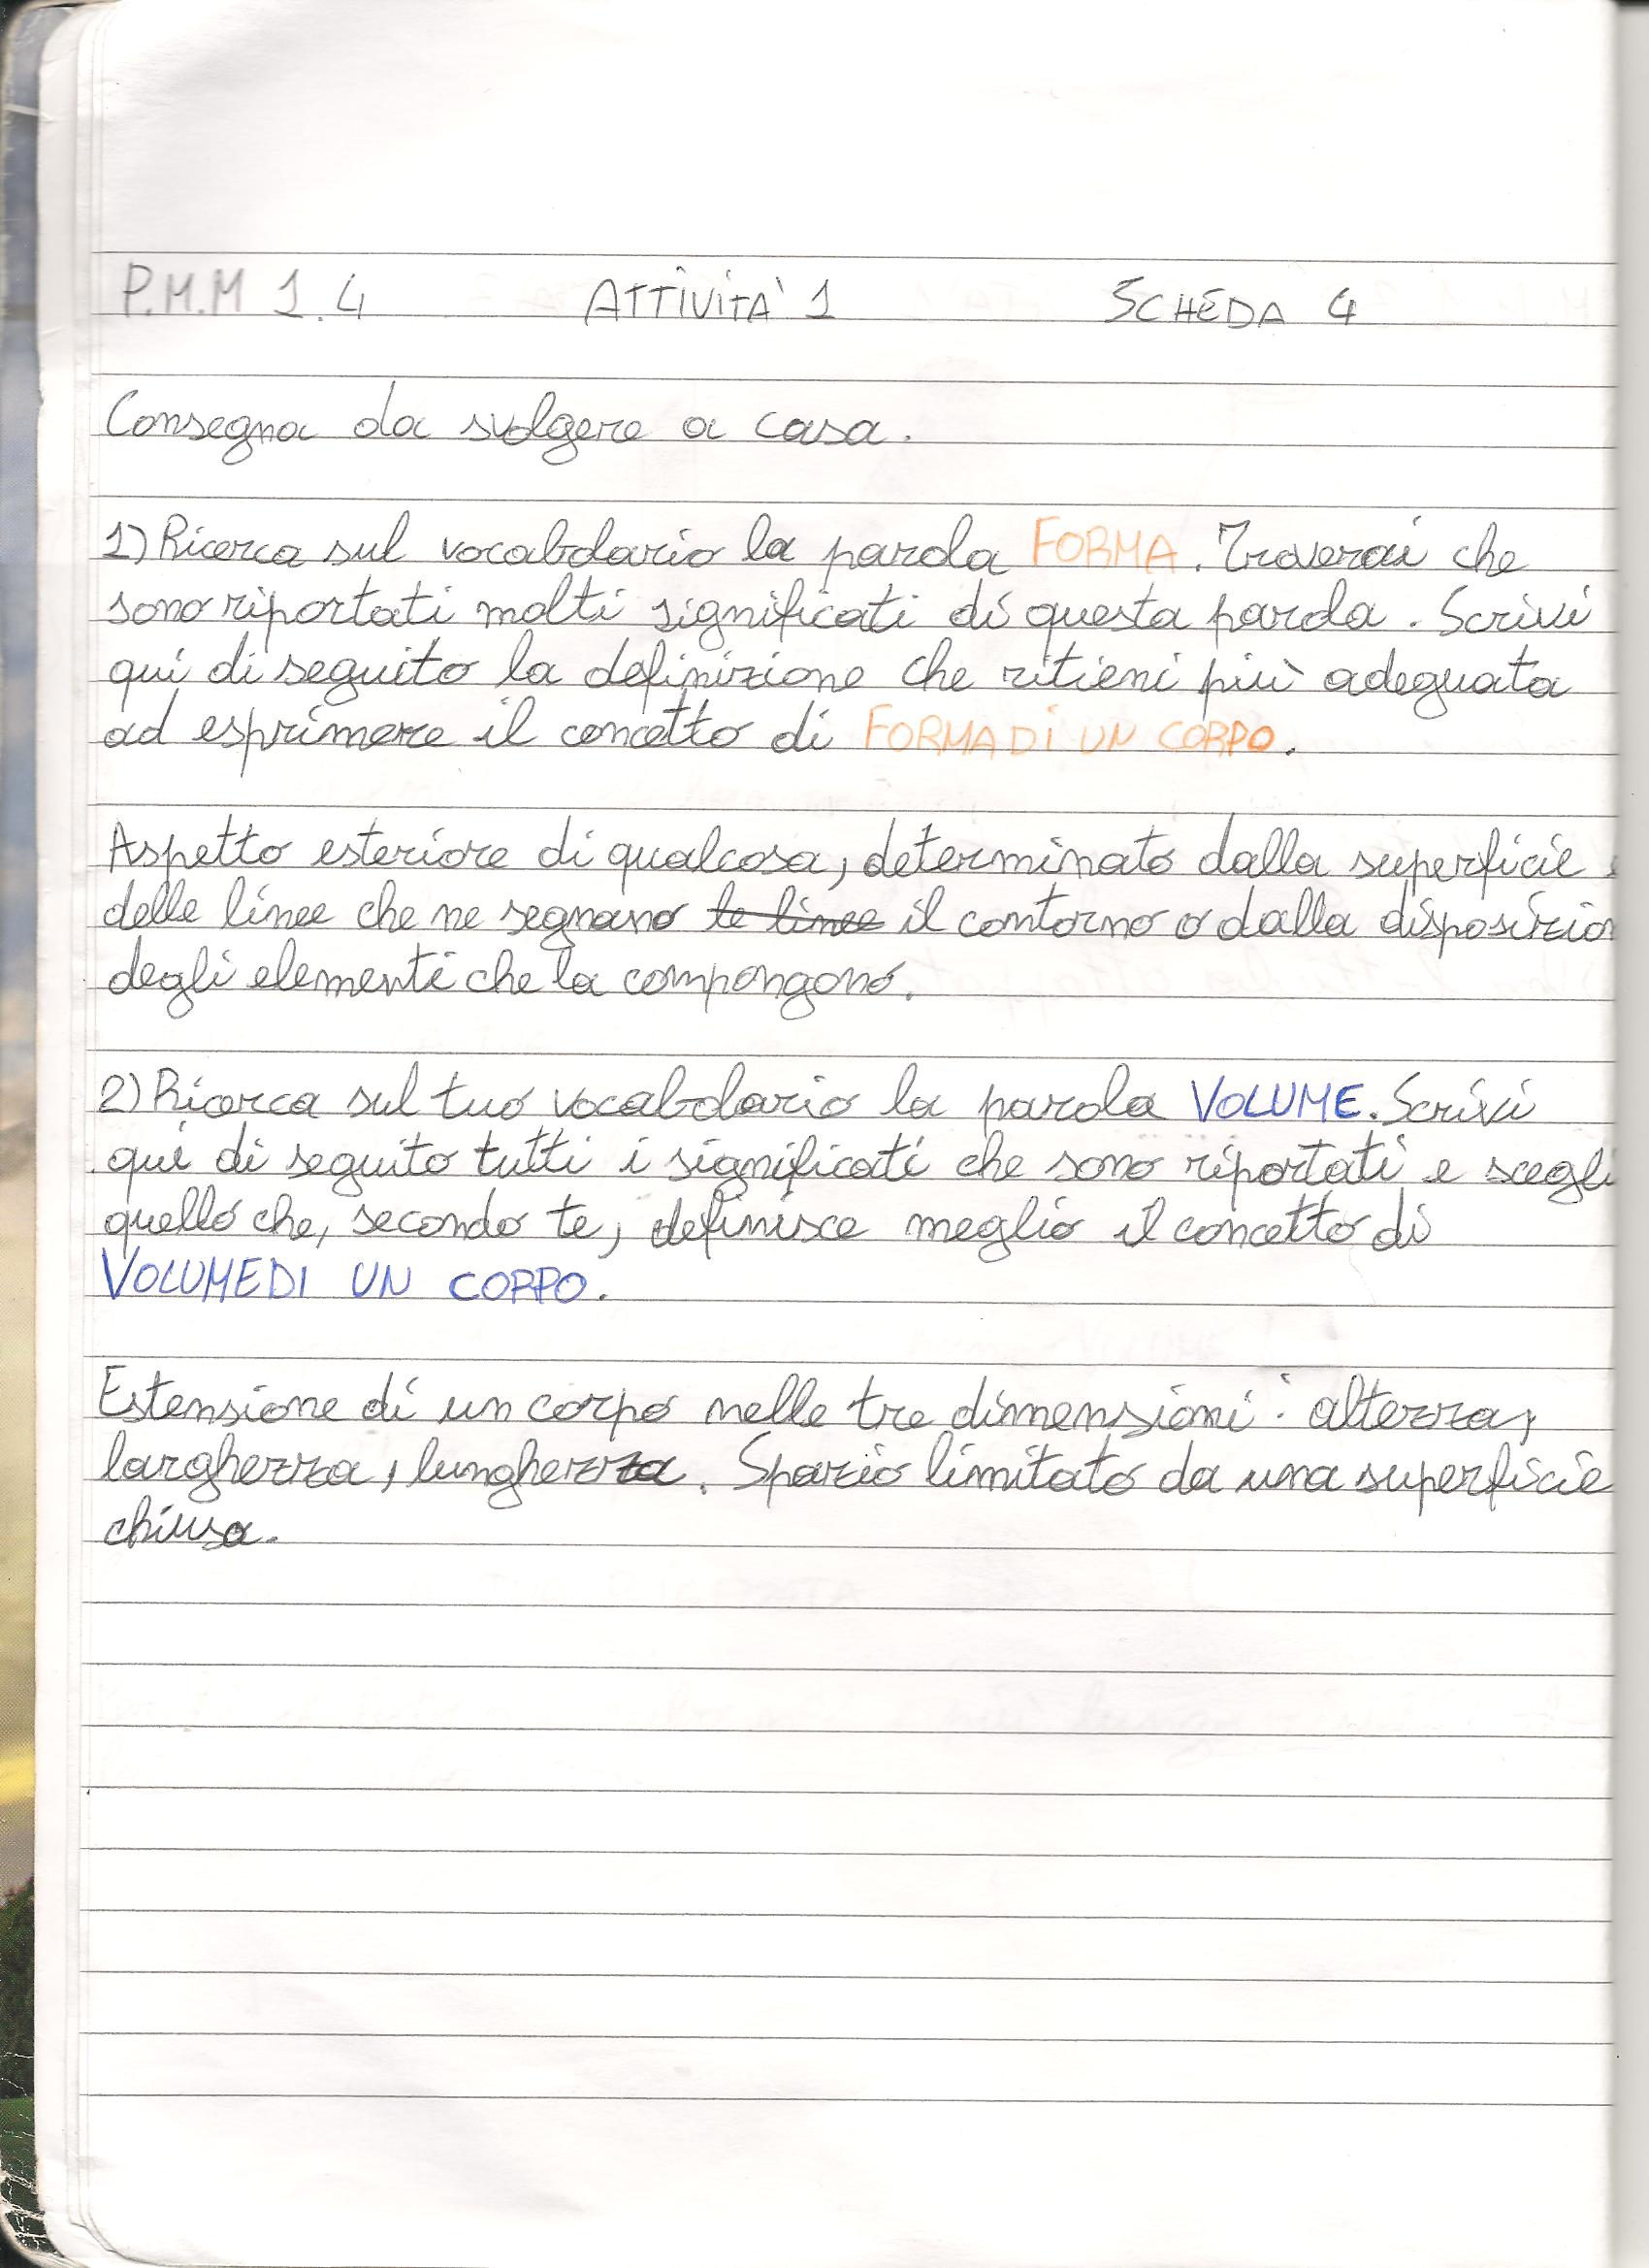 P.M.M 1.4 ATTIVITÀ 1 SCHEDA 4
Consegna da svolgere a casa.
1) Ricerca sul vocabolario la parola FORMA. Troverai che
sono riportati molti significati di questa parola. Scrivi
qui di seguito la definizione che ritieni più adeguata
ad esprimere il concetto di FORMA DI UN CORPO.
Aspetto esteriore di qualcosa, determinato dalla superficie
delle linee che ne segnano le linee il contorno o dalla disposizion
degli elementi che la compongono.
2) Ricerca sul tuo vocabolario la parola VOLUME. Scrivi
qui di seguito tutti i significati che sono riportati e scegli
quello che, secondo te, definisce meglio il concetto di
VOLUME DI UN CORPO.
Estensione di un corpo nelle tre dimensioni: altezza,
larghezza, lunghezza. Spazio limitato da una superficie
chiusa.